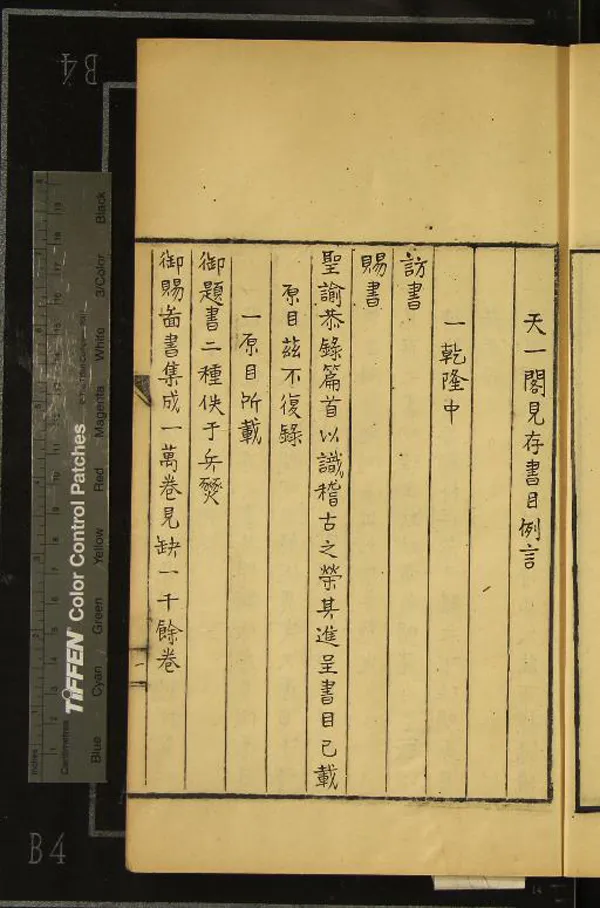 天一閣見存書目例言
一乾隆中
訪書
賜書
聖諭恭錄篇首以識稽古之榮其進呈書目已載
原目茲不復錄
一原目所載
御題書二種佚于兵燹
御賜啚書集成一萬卷見缺一千餘卷
一
B4
B4
TIFFEN Color Control Patches
Blue Cyan Green Yellow Red Magenta White 3/Color Black
Centimetres
Inches